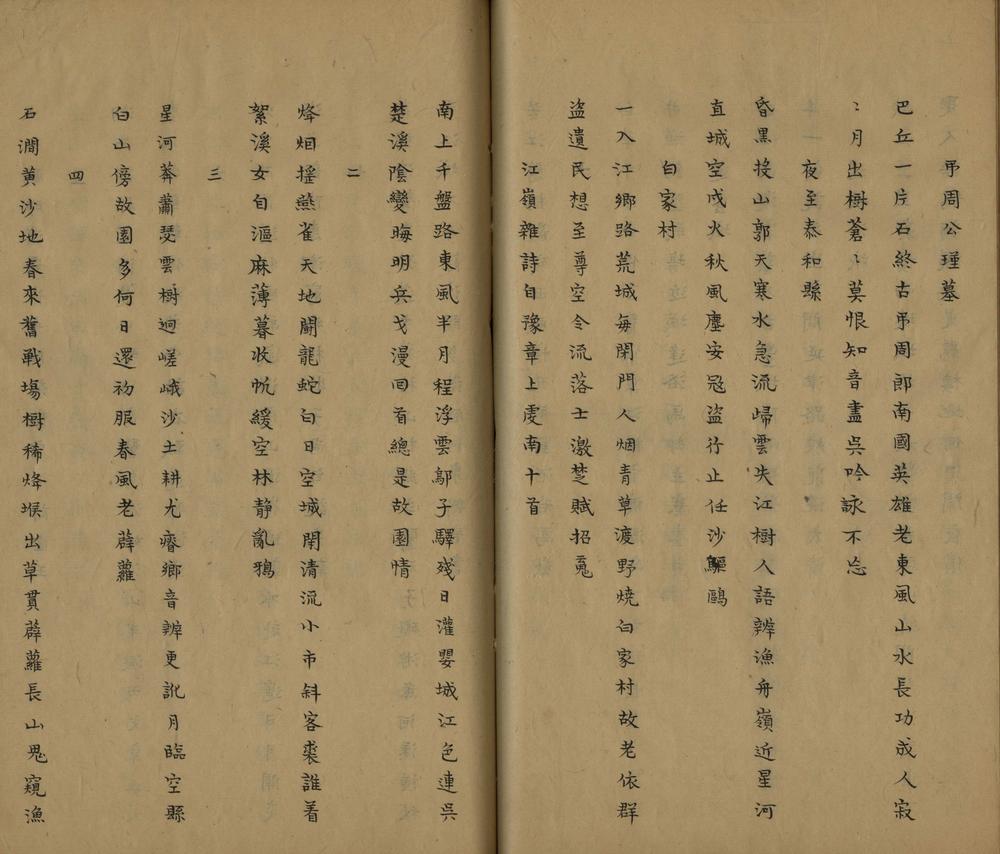 弔周公瑾墓
巴丘一片石終古弔周郎南國英雄老東風山水長功成人寂
〻月出樹蒼〻莫恨知音盡吳吟詠不忘
夜至泰和縣
昏黑投山郭天寒水急流歸雲失江樹人語辨漁舟嶺近星河
直城空戍火秋風塵安冦盜行止任沙鷗
白家村
一入江鄉路荒城每閉門人烟青草渡野燒白家村故老依群
盜遺民想至尊空令流落士激楚賦招䰟
江嶺雜詩自豫章上虔南十首
南上千盤路東風半月程浮雲鄔子驛殘日灌嬰城江色連吳
楚溪陰變晦明兵戈漫回首總是故園情
二
烽烟揺燕雀天地鬪龍蛇白日空城閉清流小市斜客裘誰着
絮溪女自漚麻薄暮收帆緩空林静亂鴉
三
星河莽蕭瑟雲樹迥嵯峨沙土耕尤瘠鄉音辨更訛月臨空縣
白山傍故園多何日還初服春風老薜蘿
四
石澗黄沙地春來舊戰塲樹稀烽堠出草貫薜蘿長山鬼窺漁